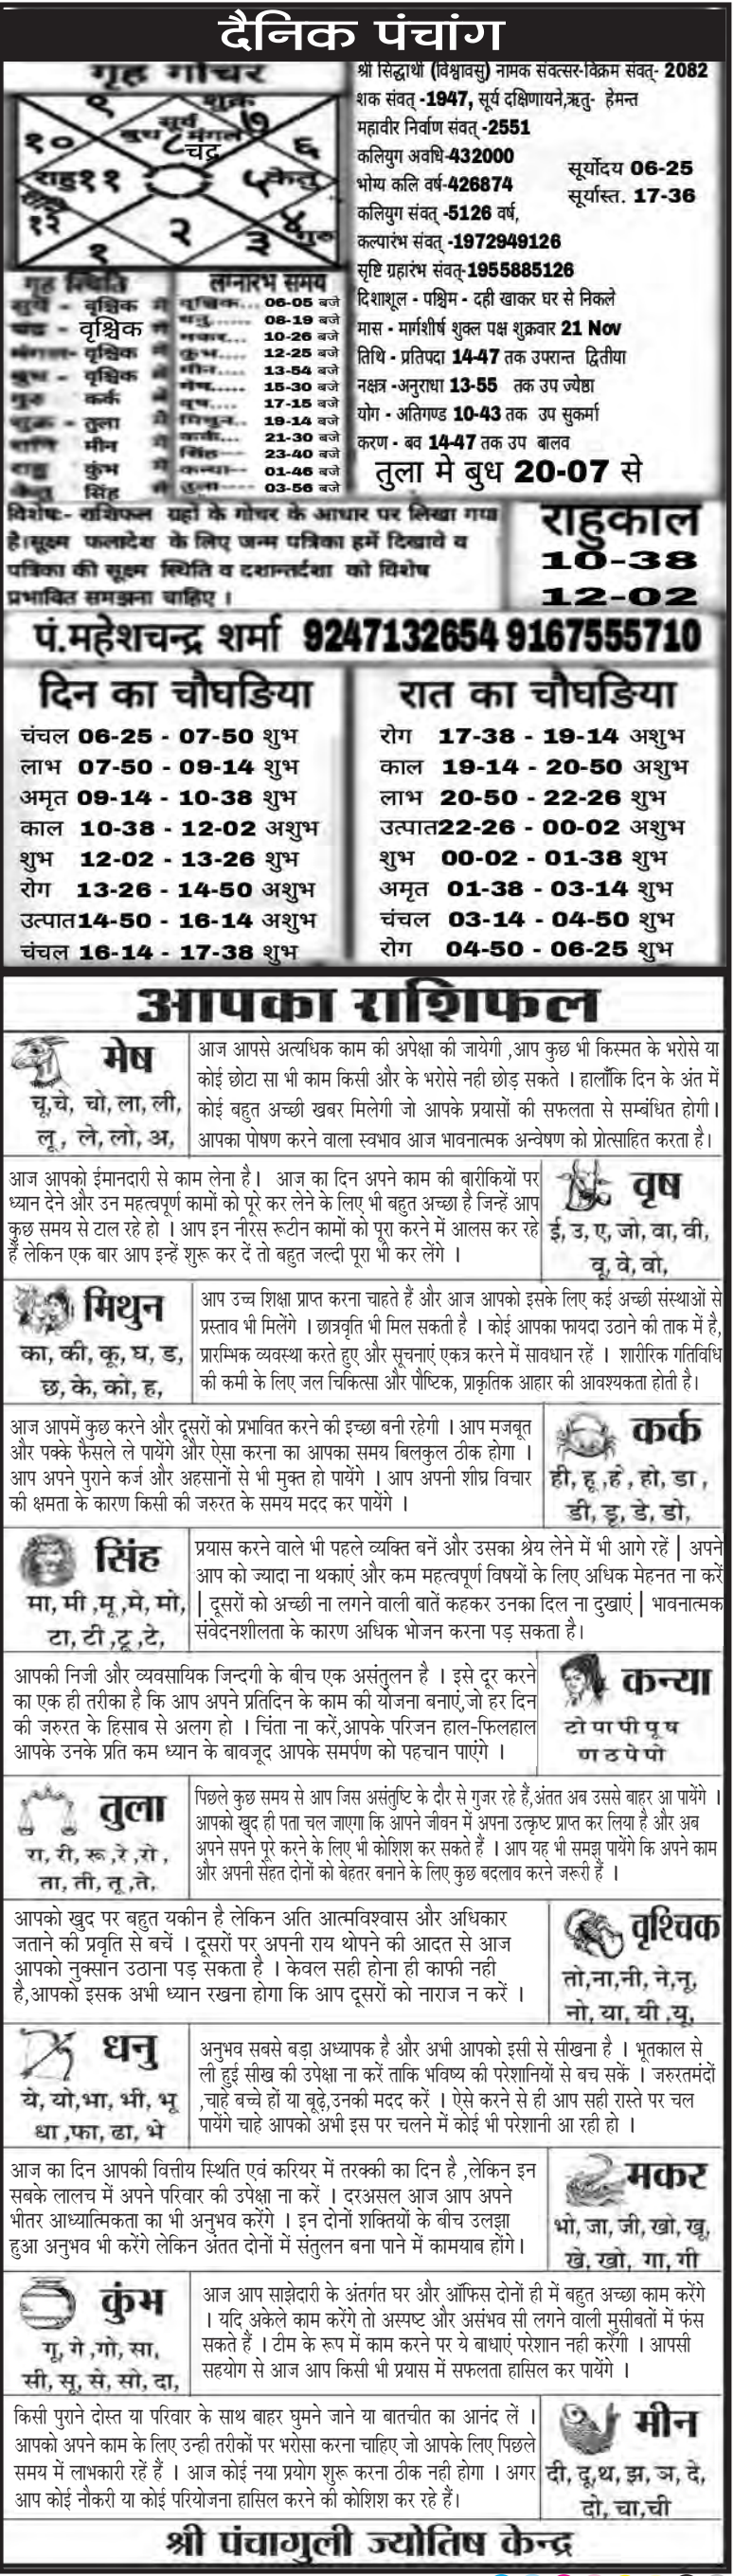 दैनिक पंचांग
गृह गोचर
९
शुक्र
१०
सूर्य
बुध मंगल
७
८
चंद्र
६
राहु ११
५
केतु
१२
४
गुरु
१
२
३
श्री सिद्धार्थी (विश्वावसु) नामक संवत्सर-विक्रम संवत्- 2082
शक संवत् -1947, सूर्य दक्षिणायने,ऋतु- हेमन्त
महावीर निर्वाण संवत् -2551
कलियुग अवधि-432000
भोग्य कलि वर्ष-426874
कलियुग संवत् -5126 वर्ष,
कल्पारंभ संवत् -1972949126
सृष्टि ग्रहारंभ संवत्-1955885126
सूर्योदय 06-25
सूर्यास्त. 17-36
दिशाशूल - पश्चिम - दही खाकर घर से निकले
मास - मार्गशीर्ष शुक्ल पक्ष शुक्रवार 21 Nov
तिथि - प्रतिपदा 14-47 तक उपरान्त द्वितीया
नक्षत्र -अनुराधा 13-55 तक उप ज्येष्ठा
योग - अतिगण्ड 10-43 तक उप सुकर्मा
करण - बव 14-47 तक उप बालव
तुला मे बुध 20-07 से
गृह स्थिति
सूर्य - वृश्चिक में
चंद्र - वृश्चिक में
मंगल- वृश्चिक में
बुध - वृश्चिक में
गुरु - कर्क में
शुक्र - तुला में
शनि मीन में
राहु कुंभ में
केतु सिंह में
लग्नारंभ समय
वृश्चिक... 06-05 बजे
धनु...... 08-19 बजे
मकर.... 10-26 बजे
कुंभ.... 12-25 बजे
मीन.... 13-54 बजे
मेष..... 15-30 बजे
वृष..... 17-15 बजे
मिथुन.. 19-14 बजे
कर्क... 21-30 बजे
सिंह---- 23-40 बजे
कन्या--- 01-46 बजे
तुला---- 03-56 बजे
विशेष:- राशिफल ग्रहों के गोचर के आधार पर लिखा गया
है।सूक्ष्म फलादेश के लिए जन्म पत्रिका हमें दिखावे व
पत्रिका की सूक्ष्म स्थिति व दशान्तर्दशा को विशेष
प्रभावित समझना चाहिए ।
राहुकाल
10-38
12-02
पं.महेशचन्द्र शर्मा 9247132654 9167555710
दिन का चौघङिया
चंचल 06-25 - 07-50 शुभ
लाभ 07-50 - 09-14 शुभ
अमृत 09-14 - 10-38 शुभ
काल 10-38 - 12-02 अशुभ
शुभ 12-02 - 13-26 शुभ
रोग 13-26 - 14-50 अशुभ
उत्पात14-50 - 16-14 अशुभ
चंचल 16-14 - 17-38 शुभ
रात का चौघङिया
रोग 17-38 - 19-14 अशुभ
काल 19-14 - 20-50 अशुभ
लाभ 20-50 - 22-26 शुभ
उत्पात22-26 - 00-02 अशुभ
शुभ 00-02 - 01-38 शुभ
अमृत 01-38 - 03-14 शुभ
चंचल 03-14 - 04-50 शुभ
रोग 04-50 - 06-25 शुभ
आपका राशिफल
मेष
चू,चे, चो, ला, ली,
लू , ले, लो, अ,
आज आपसे अत्यधिक काम की अपेक्षा की जायेगी ,आप कुछ भी किस्मत के भरोसे या
कोई छोटा सा भी काम किसी और के भरोसे नही छोड़ सकते । हालाँकि दिन के अंत में
कोई बहुत अच्छी खबर मिलेगी जो आपके प्रयासों की सफलता से सम्बंधित होगी।
आपका पोषण करने वाला स्वभाव आज भावनात्मक अन्वेषण को प्रोत्साहित करता है।
आज आपको ईमानदारी से काम लेना है। आज का दिन अपने काम की बारीकियों पर
ध्यान देने और उन महत्वपूर्ण कामों को पूरे कर लेने के लिए भी बहुत अच्छा है जिन्हें आप
कुछ समय से टाल रहे हो । आप इन नीरस रूटीन कामों को पूरा करने में आलस कर रहे
हैं लेकिन एक बार आप इन्हें शुरू कर दें तो बहुत जल्दी पूरा भी कर लेंगे ।
वृष
ई, उ, ए, जो, वा, वी,
वू, वे, वो,
मिथुन
का, की, कू, घ, ड,
छ, के, को, ह,
आप उच्च शिक्षा प्राप्त करना चाहते हैं और आज आपको इसके लिए कई अच्छी संस्थाओं से
प्रस्ताव भी मिलेंगे । छात्रवृति भी मिल सकती है । कोई आपका फायदा उठाने की ताक में है,
प्रारम्भिक व्यवस्था करते हुए और सूचनाएं एकत्र करने में सावधान रहें । शारीरिक गतिविधि
की कमी के लिए जल चिकित्सा और पौष्टिक, प्राकृतिक आहार की आवश्यकता होती है।
आज आपमें कुछ करने और दूसरों को प्रभावित करने की इच्छा बनी रहेगी । आप मजबूत
और पक्के फैसले ले पायेंगे और ऐसा करना का आपका समय बिलकुल ठीक होगा ।
आप अपने पुराने कर्ज और अहसानों से भी मुक्त हो पायेंगे । आप अपनी शीघ्र विचार
की क्षमता के कारण किसी की जरुरत के समय मदद कर पायेंगे ।
कर्क
ही, हू ,हे , हो, डा ,
डी, डू, डे, डो,
सिंह
मा, मी ,मू ,मे, मो,
टा, टी ,टू ,टे,
प्रयास करने वाले भी पहले व्यक्ति बनें और उसका श्रेय लेने में भी आगे रहें | अपने
आप को ज्यादा ना थकाएं और कम महत्वपूर्ण विषयों के लिए अधिक मेहनत ना करें
| दूसरों को अच्छी ना लगने वाली बातें कहकर उनका दिल ना दुखाएं | भावनात्मक
संवेदनशीलता के कारण अधिक भोजन करना पड़ सकता है।
आपकी निजी और व्यवसायिक जिन्दगी के बीच एक असंतुलन है । इसे दूर करने
का एक ही तरीका है कि आप अपने प्रतिदिन के काम की योजना बनाएं,जो हर दिन
की जरुरत के हिसाब से अलग हो । चिंता ना करें,आपके परिजन हाल-फिलहाल
आपके उनके प्रति कम ध्यान के बावजूद आपके समर्पण को पहचान पाएंगे ।
कन्या
टो पा पी पू ष
ण ठ पे पो
तुला
रा, री, रू ,रे ,रो ,
ता, ती, तू ,ते,
पिछले कुछ समय से आप जिस असंतुष्टि के दौर से गुजर रहे हैं,अंतत अब उससे बाहर आ पायेंगे ।
आपको खुद ही पता चल जाएगा कि आपने जीवन में अपना उत्कृष्ट प्राप्त कर लिया है और अब
अपने सपने पूरे करने के लिए भी कोशिश कर सकते हैं । आप यह भी समझ पायेंगे कि अपने काम
और अपनी सेहत दोनों को बेहतर बनाने के लिए कुछ बदलाव करने जरूरी हैं ।
आपको खुद पर बहुत यकीन है लेकिन अति आत्मविश्वास और अधिकार
जताने की प्रवृति से बचें । दूसरों पर अपनी राय थोपने की आदत से आज
आपको नुक्सान उठाना पड़ सकता है । केवल सही होना ही काफी नही
है,आपको इसक अभी ध्यान रखना होगा कि आप दूसरों को नाराज न करें ।
वृश्चिक
तो,ना,नी, ने,नू,
नो, या, यी ,यू,
धनु
ये, यो,भा, भी, भू
धा ,फा, ढा, भे
अनुभव सबसे बड़ा अध्यापक है और अभी आपको इसी से सीखना है । भूतकाल से
ली हुई सीख की उपेक्षा ना करें ताकि भविष्य की परेशानियों से बच सकें । जरुरतमंदों
,चाहे बच्चे हों या बूढ़े,उनकी मदद करें । ऐसे करने से ही आप सही रास्ते पर चल
पायेंगे चाहे आपको अभी इस पर चलने में कोई भी परेशानी आ रही हो ।
आज का दिन आपकी वित्तीय स्थिति एवं करियर में तरक्की का दिन है ,लेकिन इन
सबके लालच में अपने परिवार की उपेक्षा ना करें । दरअसल आज आप अपने
भीतर आध्यात्मिकता का भी अनुभव करेंगे । इन दोनों शक्तियों के बीच उलझा
हुआ अनुभव भी करेंगे लेकिन अंतत दोनों में संतुलन बना पाने में कामयाब होंगे।
मकर
भो, जा, जी, खो, खू,
खे, खो, गा, गी
कुंभ
गू, गे ,गो, सा,
सी, सू, से, सो, दा,
आज आप साझेदारी के अंतर्गत घर और ऑफिस दोनों ही में बहुत अच्छा काम करेंगे
। यदि अकेले काम करेंगे तो अस्पष्ट और असंभव सी लगने वाली मुसीबतों में फंस
सकते हैं । टीम के रूप में काम करने पर ये बाधाएं परेशान नही करेंगी । आपसी
सहयोग से आज आप किसी भी प्रयास में सफलता हासिल कर पायेंगे ।
किसी पुराने दोस्त या परिवार के साथ बाहर घुमने जाने या बातचीत का आनंद लें ।
आपको अपने काम के लिए उन्ही तरीकों पर भरोसा करना चाहिए जो आपके लिए पिछले
समय में लाभकारी रहें हैं । आज कोई नया प्रयोग शुरू करना ठीक नही होगा । अगर
आप कोई नौकरी या कोई परियोजना हासिल करने की कोशिश कर रहे हैं।
मीन
दी, दू,थ, झ, ञ, दे,
दो, चा,ची
श्री पंचागुली ज्योतिष केन्द्र